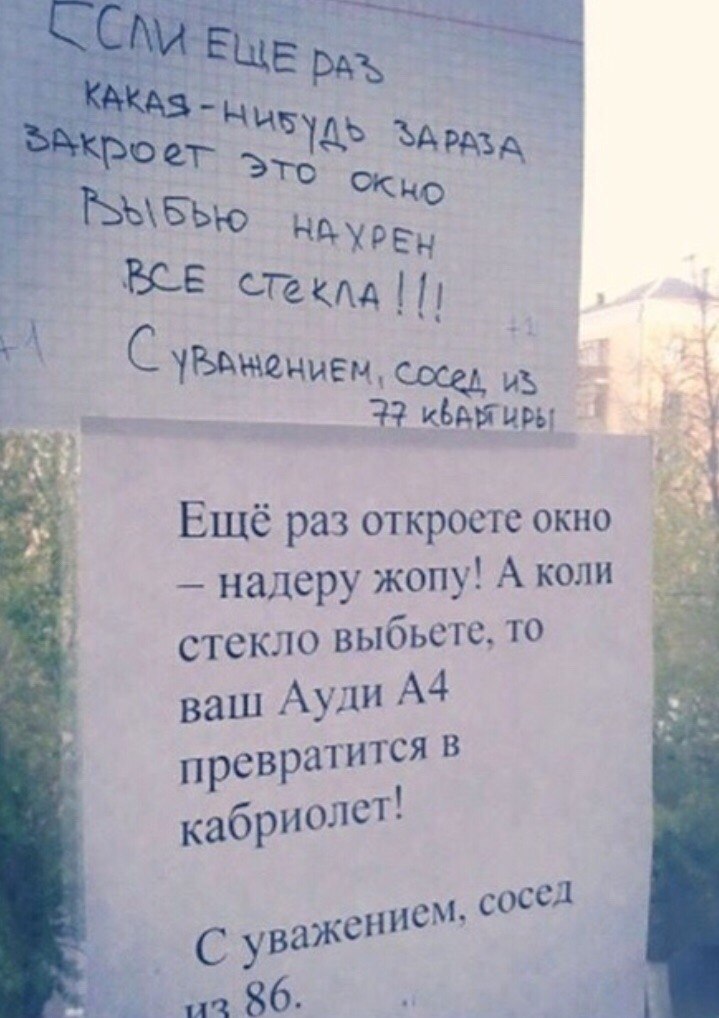 ЕСЛИ ЕЩЕ РАЗ
КАКАЯ-НИБУДЬ ЗАРАЗА
ЗАКРОЕТ ЭТО ОКНО
ВЫБЬЮ НАХРЕН
ВСЕ СТЕКЛА!!!
+1
+1
С УВАЖЕНИЕМ, СОСЕД ИЗ
77 КВАРТИРЫ
Ещё раз откроете окно
– надеру жопу! А коли
стекло выбьете, то
ваш Ауди А4
превратится в
кабриолет!
С уважением, сосед
из 86.